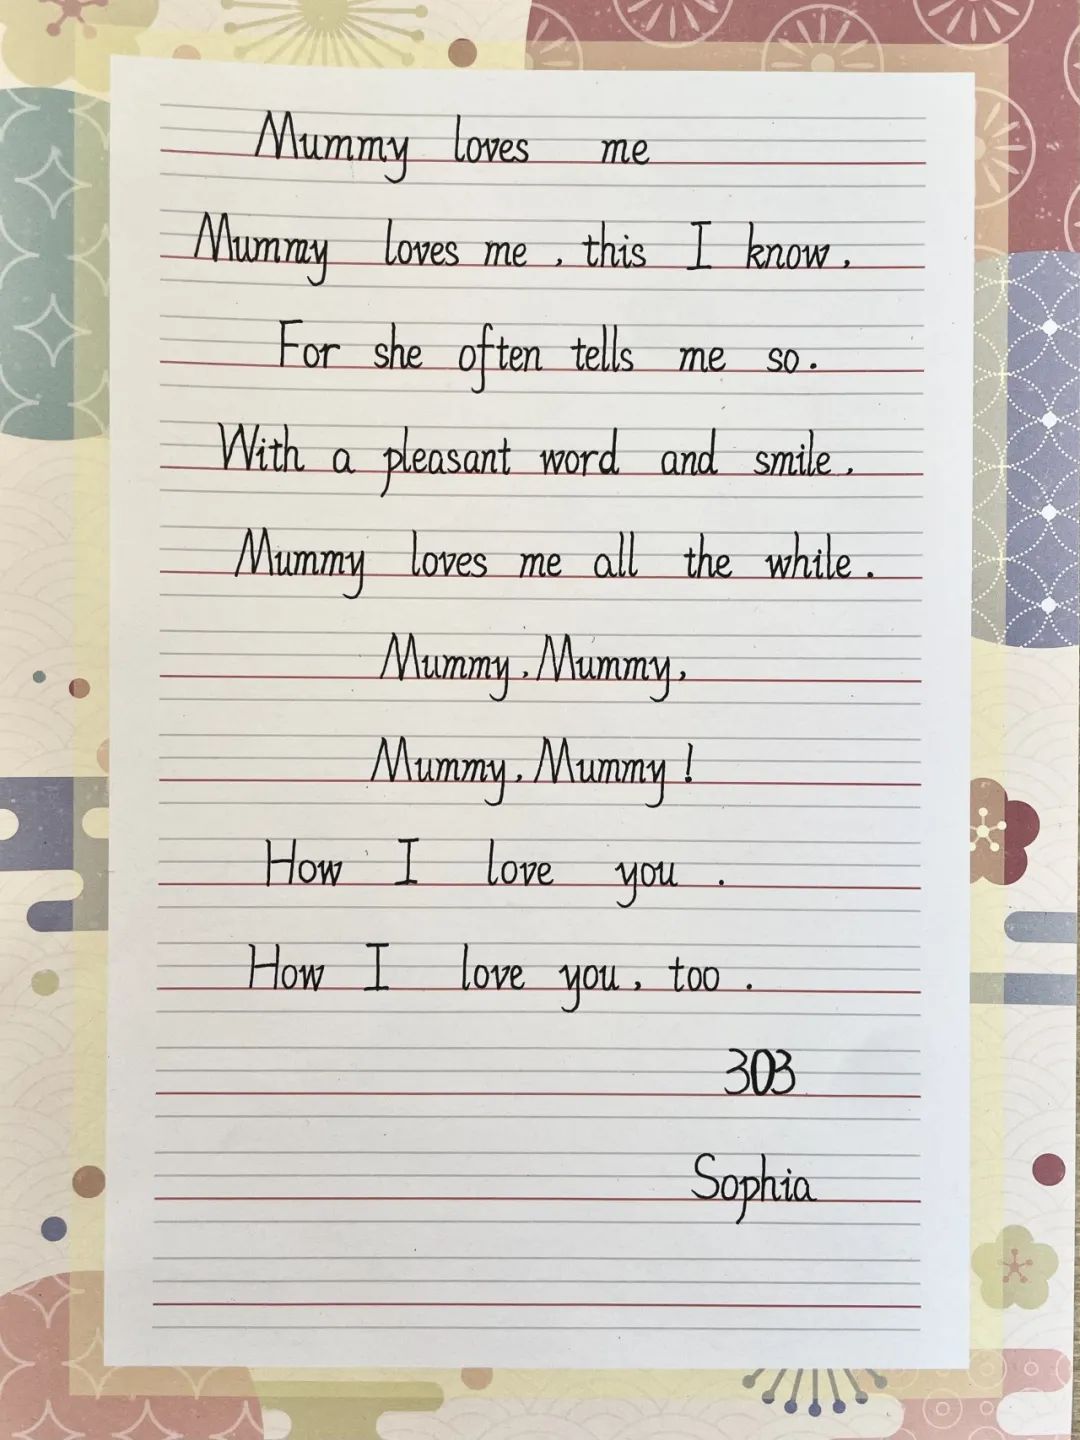 Mummy loves me
Mummy loves me, this I know,
For she often tells me so.
With a pleasant word and smile,
Mummy loves me all the while.
Mummy, Mummy,
Mummy, Mummy!
How I love you.
How I love you, too.
303
Sophia